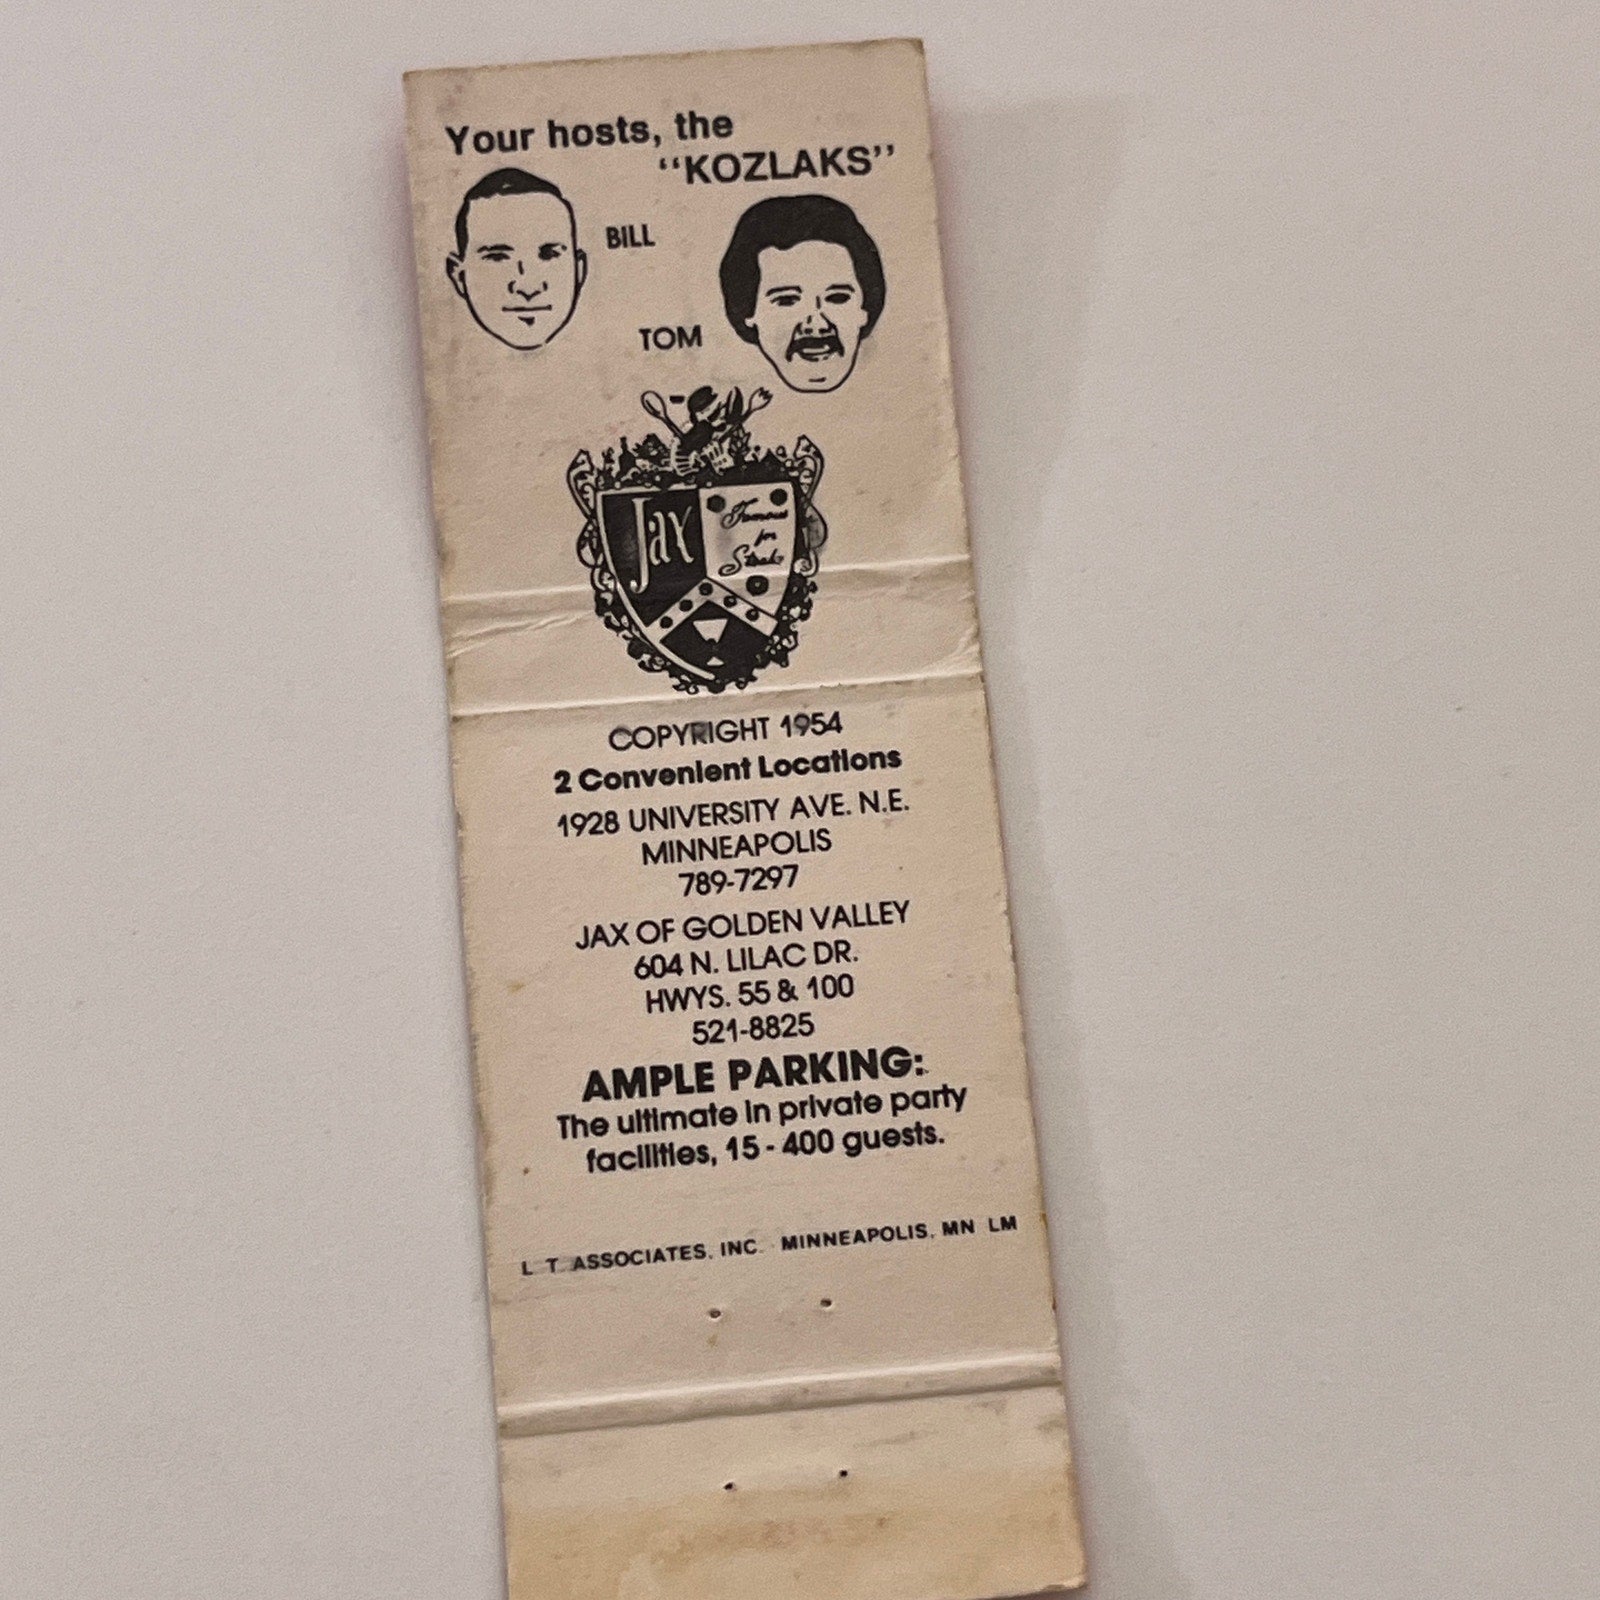 Your hosts, the
"KOZLAKS"
BILL
TOM
Jax
Famous
for
Steaks
COPYRIGHT 1954
2 Convenient Locations
1928 UNIVERSITY AVE. N.E.
MINNEAPOLIS
789-7297
JAX OF GOLDEN VALLEY
604 N. LILAC DR.
HWYS. 55 & 100
521-8825
AMPLE PARKING:
The ultimate in private party
facilities, 15 - 400 guests.
L. T. ASSOCIATES, INC. MINNEAPOLIS, MN LM